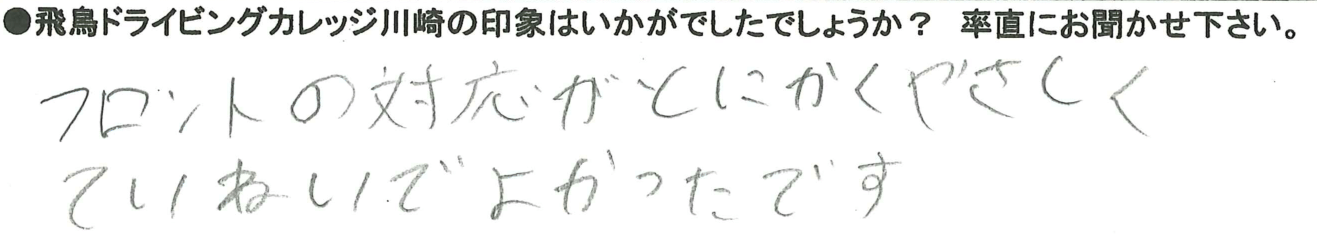 ●飛鳥ドライビングカレッジ川崎の印象はいかがでしたでしょうか？ 率直にお聞かせ下さい。
フロントの対応がとにかくやさしく
ていねいでよかったです